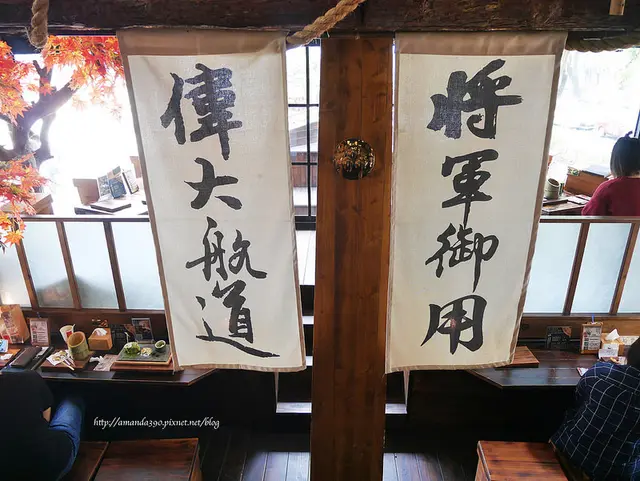 將軍御用
偉大航道
http://amanda390.pixnet.net/blog